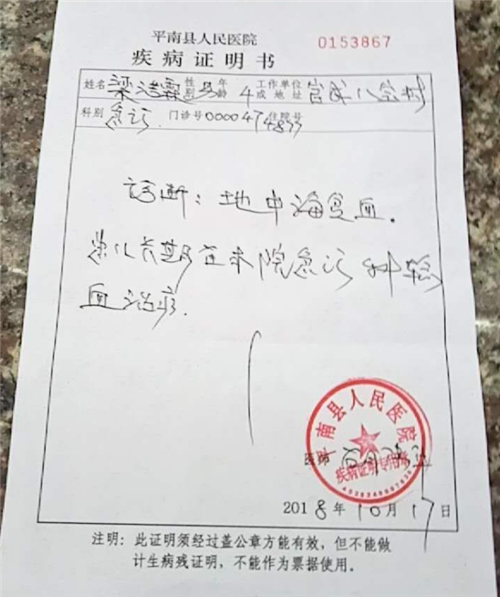 平南县人民医院
0153867
疾病证明书
姓名 梁浩霖 性别 男 年龄 4 工作单位或地址 官成八宝村
科别 急诊 门诊号 0000474833 住院号
诊断：地中海贫血.
患儿长期在本院急诊科输
血治疗.
平南县人民医院
疾病证明专用章
医师
2018年10月17日
注明：此证明须经过盖公章方能有效，但不能做
计生病残证明，不能作为票据使用。